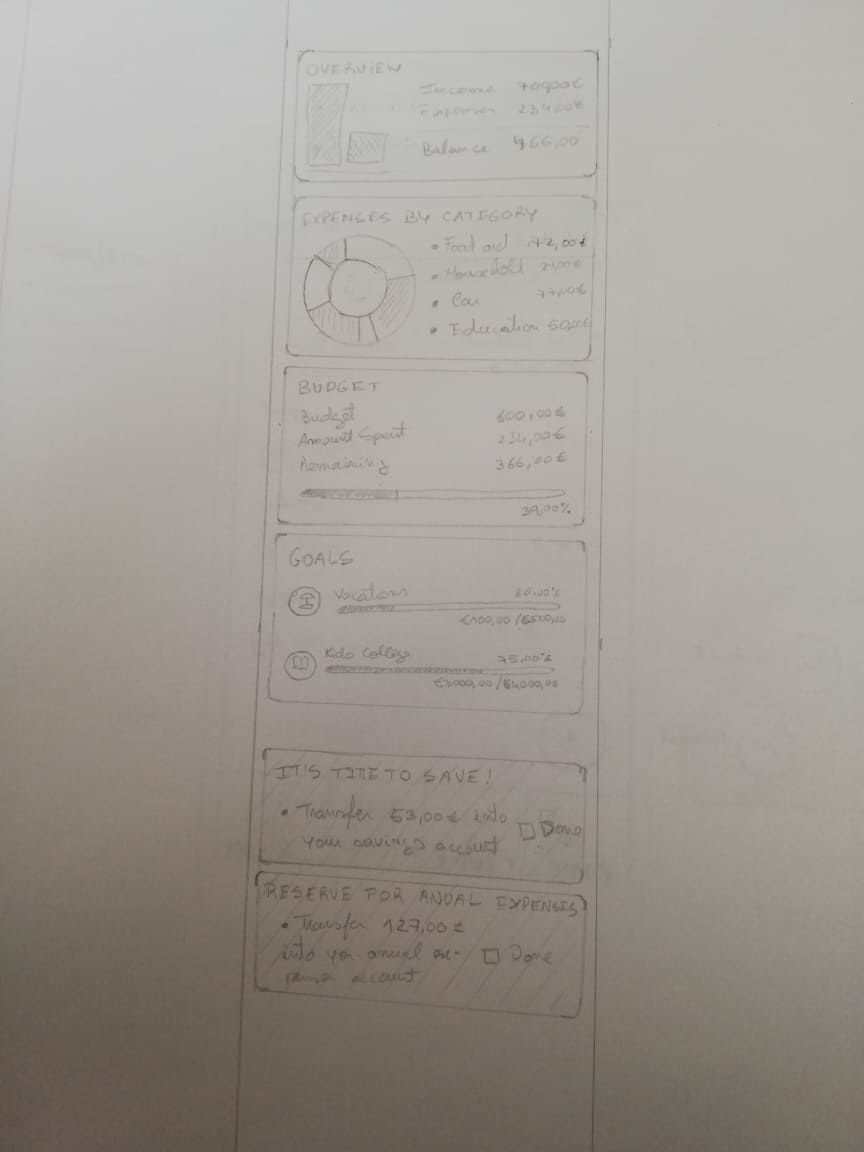 OVERVIEW
Income 700,00€
Expenses 234,00€
Balance 466,00
EXPENSES BY CATEGORY
• Food and 72,00€
• Household
• Car 77,00€
• Education
BUDGET
Budget 600,00€
Amount Spent 234,00€
Remaining 366,00€
39,00%
GOALS
Vacations 20,00%
€100,00/€500,00
Kids College 75,00%
€3000,00/€4000,00
IT'S TIME TO SAVE!
• Transfer 53,00€ into
your savings account
Done
RESERVE FOR ANUAL EXPENSES
• Transfer 127,00€
into your anual ex-
account
Done